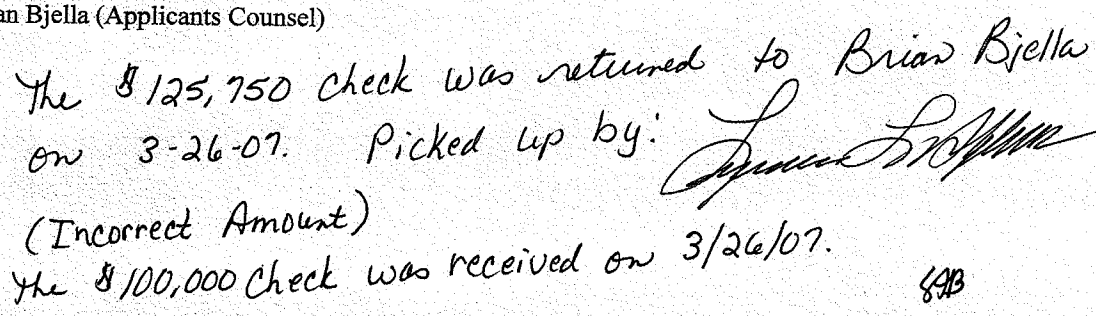 an Bjella (Applicants Counsel)
The $125,750 check was returned to Brian Bjella
on 3-26-07. Picked up by:
(Incorrect Amount)
The $100,000 check was received on 3/26/07.